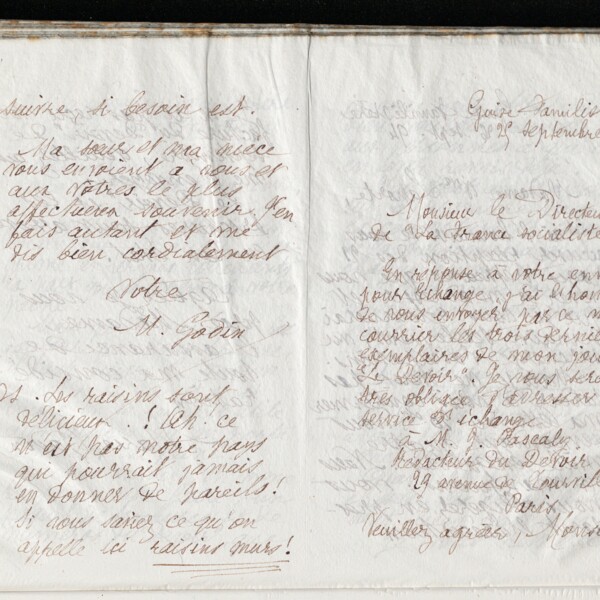 suivre si besoin est.
Ma sœur et ma nièce
vous envoient à vous et
aux vôtres le plus
affectueux souvenir. J'en
fais autant et me
dis bien cordialement
Votre
M. Godin
Les raisins sont
délicieux ! Ah ce
n'est pas notre pays
qui pourrait jamais
en donner de pareils !
Si vous saviez ce qu'on
appelle ici raisins murs !
Guise Familis
25 septembre
Monsieur le Directeu
de La France socialiste
En réponse à votre
pour échange, j'ai l'hon
de vous envoyer par ce m
courrier les trois dernie
exemplaires de mon jou
"Le Devoir". Je vous sera
très obligée d'adresser
service d'échange
à M. J. Pascaly
Rédacteur du Devoir
29 avenue de
Paris
Veuillez agréer, Monsi